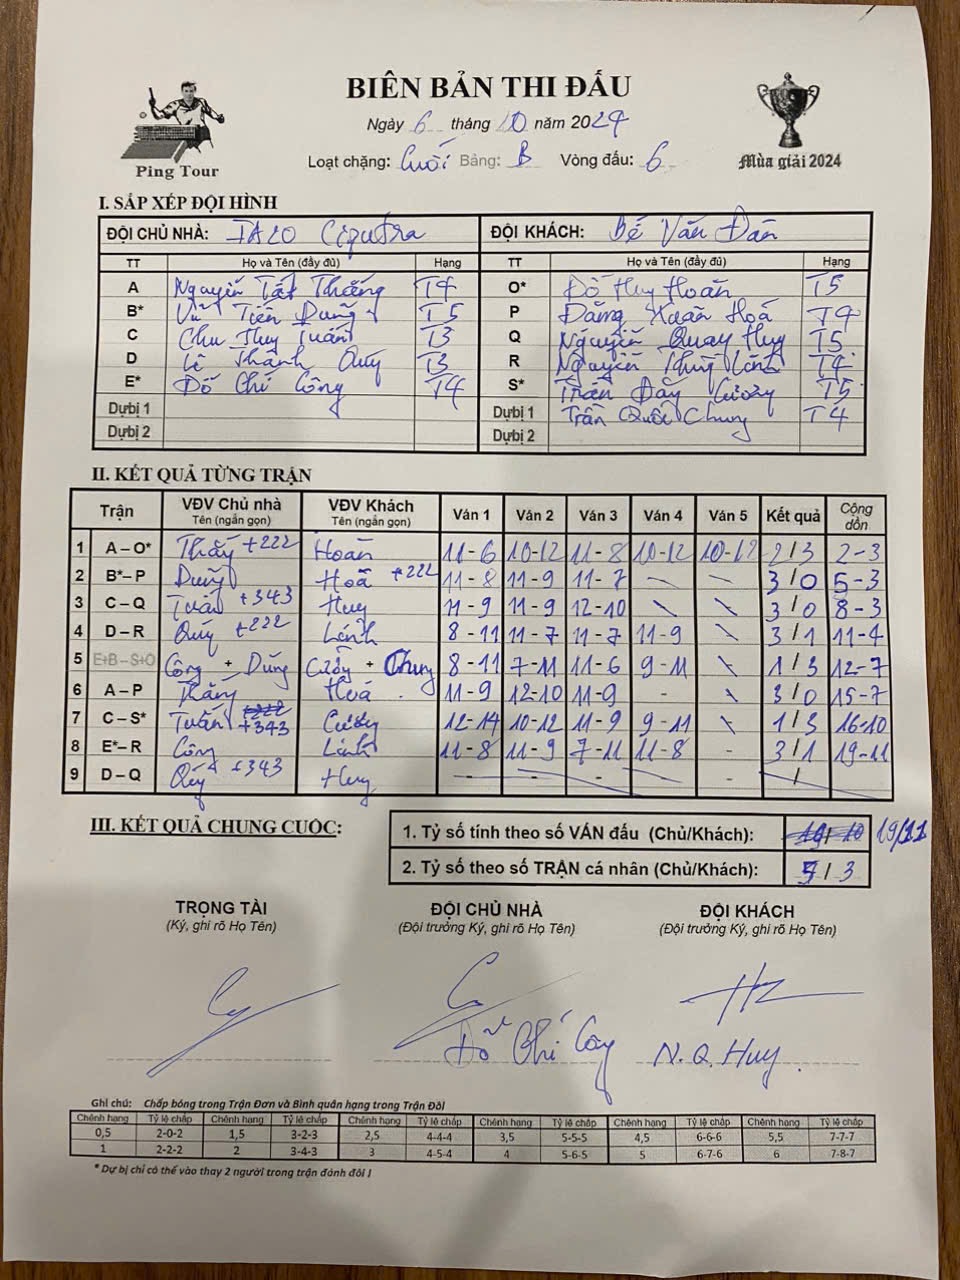 BIÊN BẢN THI ĐẤU
Ngày 6 tháng 10 năm 2024
Loạt chặng: Cuối Bảng: B Vòng đấu: 6
Ping Tour
Mùa giải 2024
I. SẮP XẾP ĐỘI HÌNH
ĐỘI CHỦ NHÀ: IA20 Ciputra ĐỘI KHÁCH: Bế Văn Đàn
TT Họ và Tên (đầy đủ) Hạng TT Họ và Tên (đầy đủ) Hạng
A Nguyễn Tất Thắng T4 O* Đỗ Huy Hoàn T5
B* Vũ Tiến Dũng T5 P Đặng Xuân Hoá T4
C Chu Huy Tuấn T3 Q Nguyễn Quay Huy T5
D Lê Thành Quý T3 R Nguyễn Thuỳ Linh T4
E* Đỗ Chí Công T4 S* Trần Đắy Cường T5
Dự bị 1 Dự bị 1 Trần Quốc Chung T4
Dự bị 2 Dự bị 2
II. KẾT QUẢ TỪNG TRẬN
Trận VĐV Chủ nhà Tên (ngắn gọn) VĐV Khách Tên (ngắn gọn) Ván 1 Ván 2 Ván 3 Ván 4 Ván 5 Kết quả Cộng dồn
1 A – O* Thắng +222 Hoàn 11-6 10-12 11-8 10-12 10-12 2/3 2-3
2 B* – P Dũng Hoá +222 11-8 11-9 11-7 - - 3/0 5-3
3 C – Q Tuấn +343 Huy 11-9 11-9 12-10 \ \ 3/0 8-3
4 D – R Quý +222 Linh 8-11 11-7 11-7 11-9 \ 3/1 11-4
5 E+B – S+O Công + Dũng Cường + Chung 8-11 7-11 11-6 9-11 \ 1/3 12-7
6 A – P Thắng Hoá 11-9 12-10 11-9 - \ 3/0 15-7
7 C – S* Tuấn +222 +343 Cường 12-14 10-12 11-9 9-11 \ 1/3 16-10
8 E* – R Công Linh 11-8 11-9 7-11 11-8 - 3/1 19-11
9 D – Q Quý +343 Huy - - - - - /
III. KẾT QUẢ CHUNG CUỘC:
1. Tỷ số tính theo số VÁN đấu (Chủ/Khách): 19/11
2. Tỷ số theo số TRẬN cá nhân (Chủ/Khách): 5/3
TRỌNG TÀI ĐỘI CHỦ NHÀ ĐỘI KHÁCH
(Ký, ghi rõ Họ Tên) (Đội trưởng Ký, ghi rõ Họ Tên) (Đội trưởng Ký, ghi rõ Họ Tên)
Đỗ Chí Công N.Q.Huy
Ghi chú: Chấp bóng trong Trận Đơn và Bình quân hạng trong Trận Đôi
Chênh hạng Tỷ lệ chấp Chênh hạng Tỷ lệ chấp Chênh hạng Tỷ lệ chấp Chênh hạng Tỷ lệ chấp Chênh hạng Tỷ lệ chấp Chênh hạng Tỷ lệ chấp
0,5 2-0-2 1,5 3-2-3 2,5 4-4-4 3,5 5-5-5 4,5 6-6-6 5,5 7-7-7
1 2-2-2 2 3-4-3 3 4-5-4 4 5-6-5 5 6-7-6 6 7-8-7
* Dự bị chỉ có thể vào thay 2 người trong trận đánh đôi !